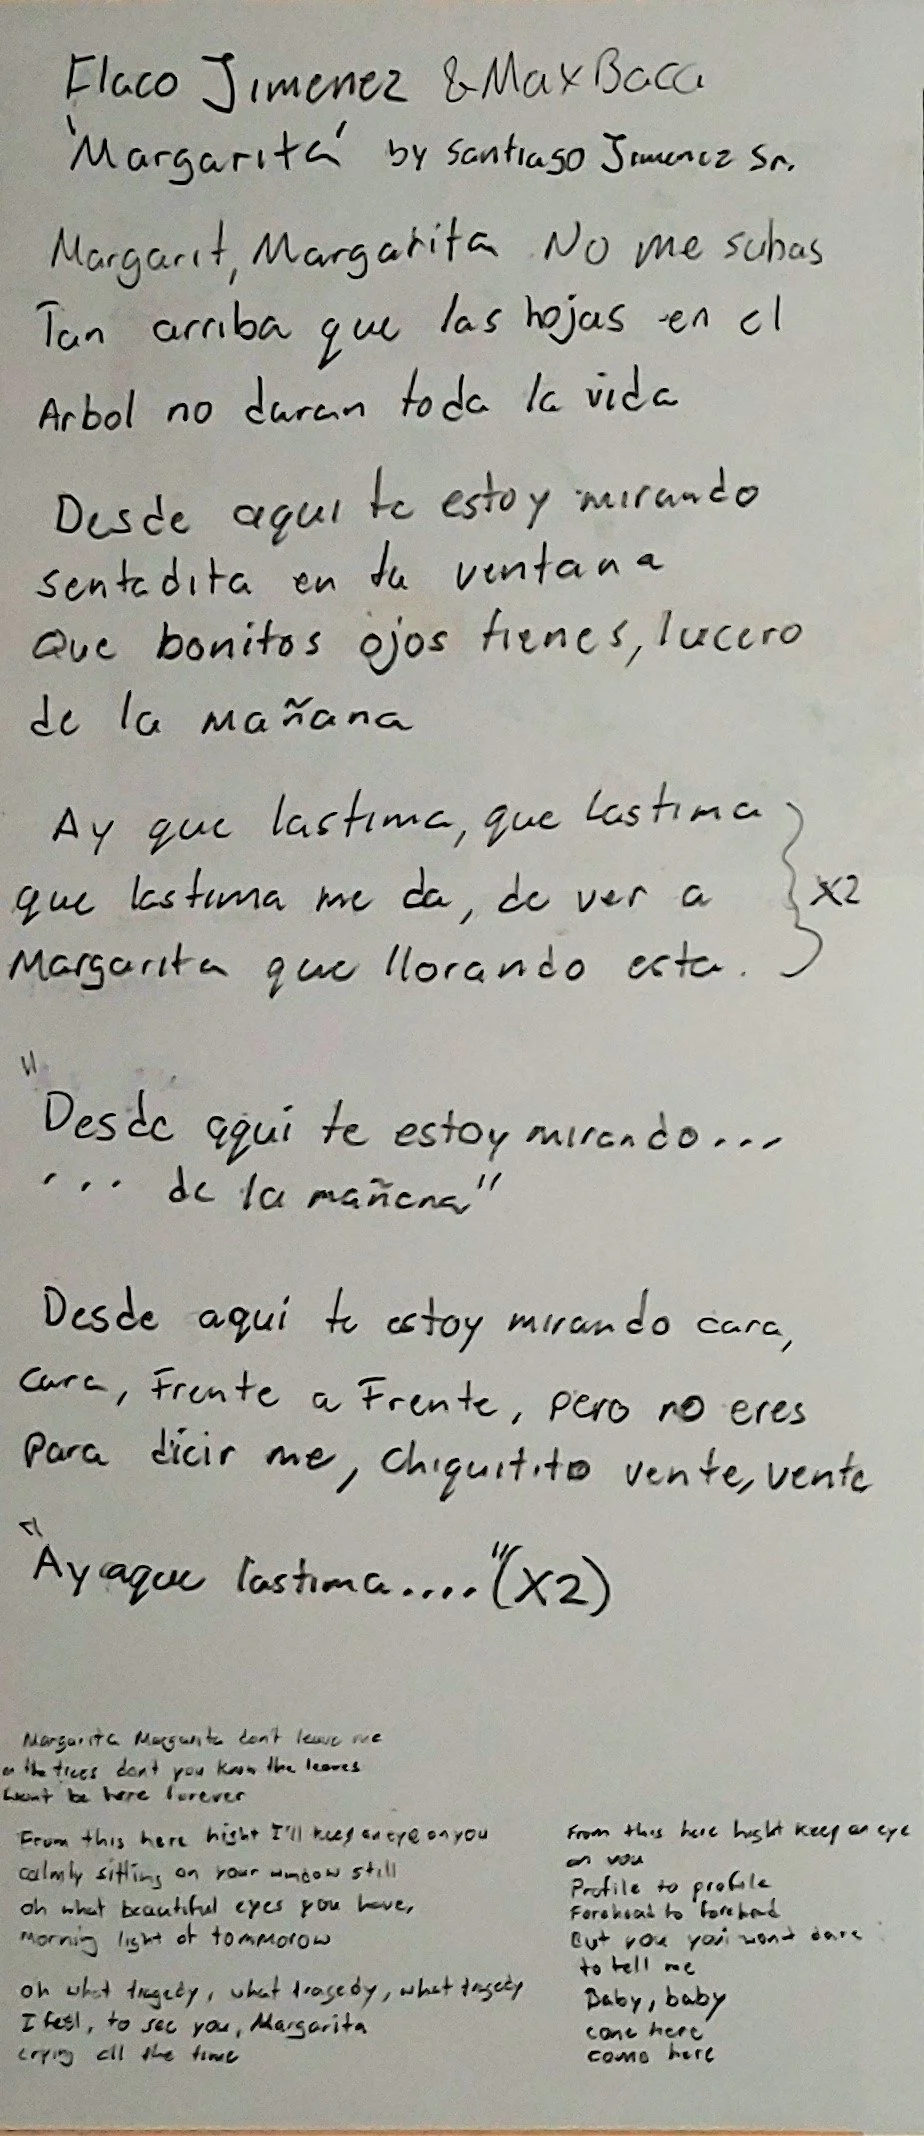 Flaco Jimenez & Max Baca
'Margarita' by Santiago Jimenez Sr.
Margarit, Margarita No me subas
Tan arriba que las hojas en el
Arbol no duran toda la vida
Desde aqui te estoy mirando
sentadita en tu ventana
Que bonitos ojos tienes, lucero
de la mañana
Ay que lastima, que lastima
que lastima me da, de ver a
Margarita que llorando esta.
X2
"Desde aqui te estoy mirando...
... de la mañana"
Desde aqui te estoy mirando cara,
cara, Frente a Frente, pero no eres
para dicir me, chiquitito vente, vente
"Ay aque lastima...." (X2)
Margarita Margarita don't leave me
on the trees dont you know the leaves
wont be here forever
From this here hight I'll keep an eye on you
calmly sitting on your window still
oh what beautiful eyes you have,
morning light of tommorow
oh what tragedy, what tragedy, what tragedy
I feel, to see you, Margarita
crying all the time
From this here hight keep an eye
on you
Profile to profile
Forehead to forehead
But you you wont dare
to tell me
Baby, baby
come here
come here